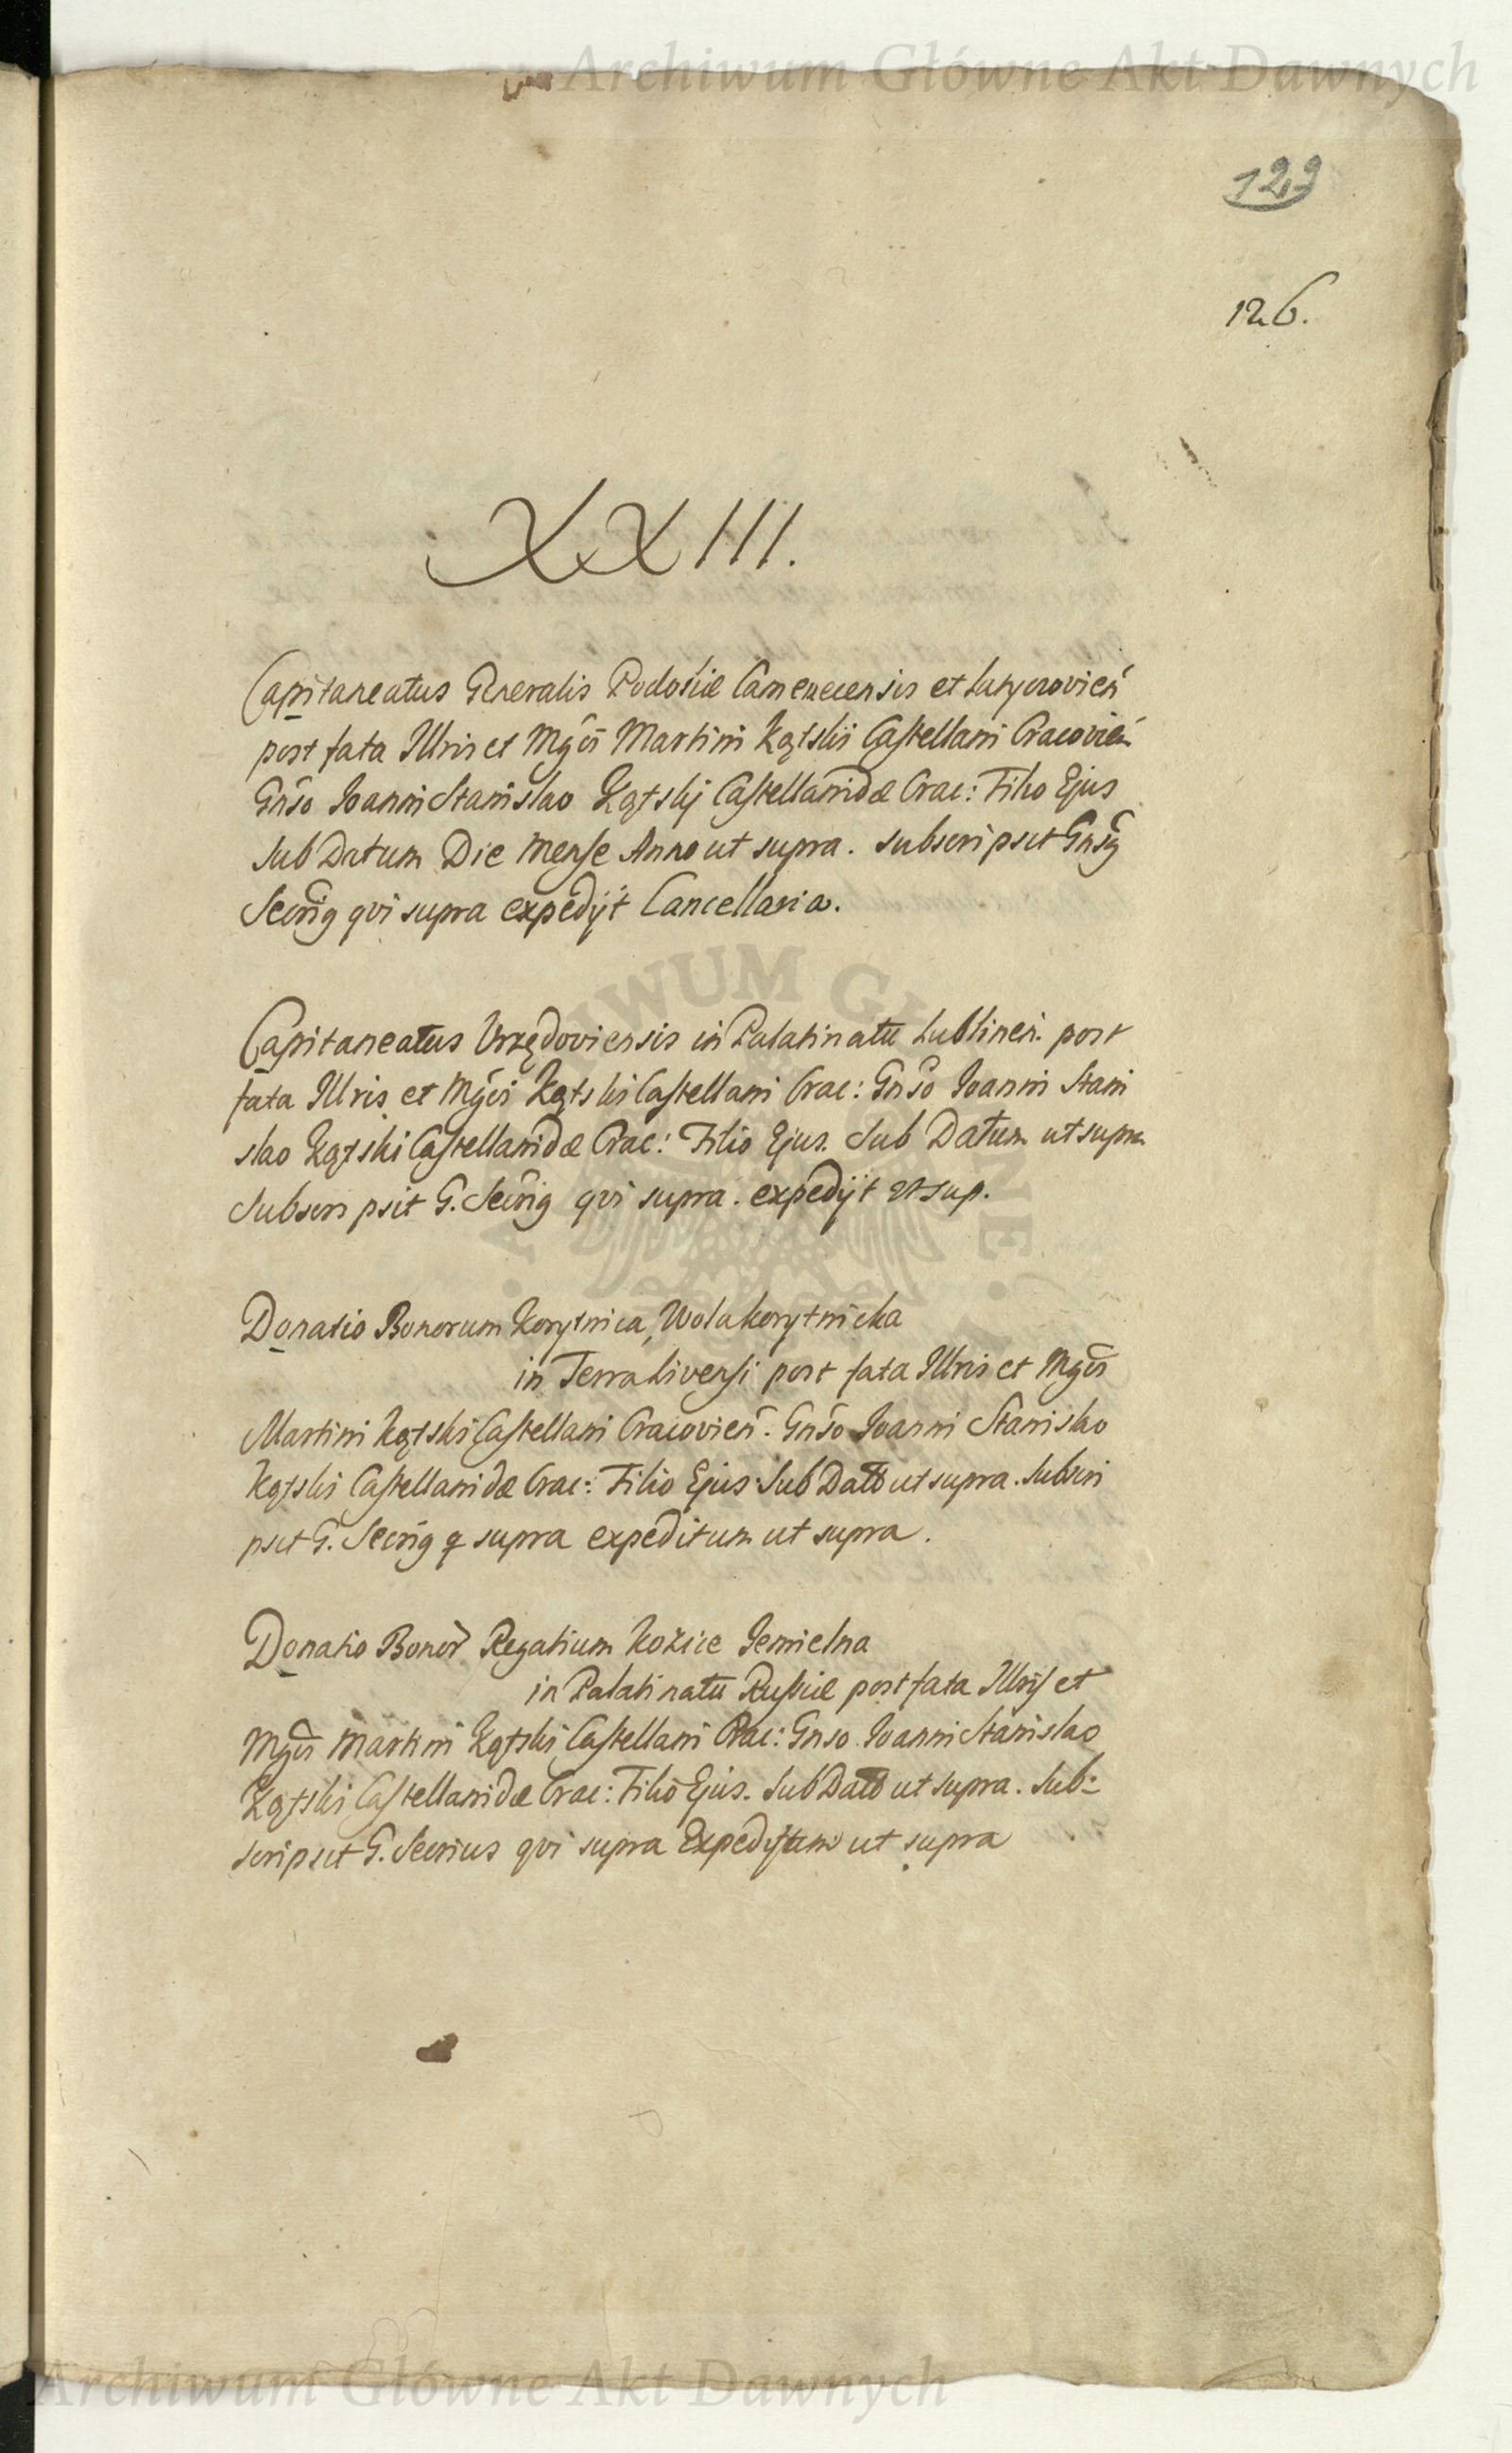 Archiwum Główne Akt Dawnych
129
126.
XXIII.
Capitaneatus Generalis Podoliæ Camenecensis et Latyczovień
post fata Illris et Mgci Martini Kątskii Castellani Cracovień
Gnso Joanni Stanislao Kątskj Castellanidæ Crac: Filio Ejus
sub Datum Die Mense Anno ut supra. subscripsit Gnsg
Secrig qvi supra expedijt Cancellaria.
Capitaneatus Urzędoviensis in Palatinatu Lublineń. post
fata Illris et Mgci Kątski Castellani Crac: Gnso Joanni Stani
slao Kątski Castellanidæ Crac: Filio Ejus. Sub Datum ut supra
Subscripsit G. Secrig qvi supra. expedijt ut sup.
Donatio Bonorum Korytnica, Wolakorytnicka
in Terra Livensi post fata Illris et Mgci
Martini Kątski Castellani Cracovień. Gnso Joanni Stanislao
Kątski Castellanidæ Crac: Filio Ejus Sub Dato ut supra. Subscri
psit G. Secrig q supra expeditum ut supra.
Donatio Bonor Regalium Kozice Jemielna
in Palatinatu Russiæ post fata Illris et
Mgci Martini Kątski Castellani Crac: Gnso Joanni Stanislao
Kątski Castellanidæ Crac: Filio Ejus. Sub Dato ut supra. Sub=
scripsit G. Secrius qvi supra Expeditum ut supra
Archiwum Główne Akt Dawnych